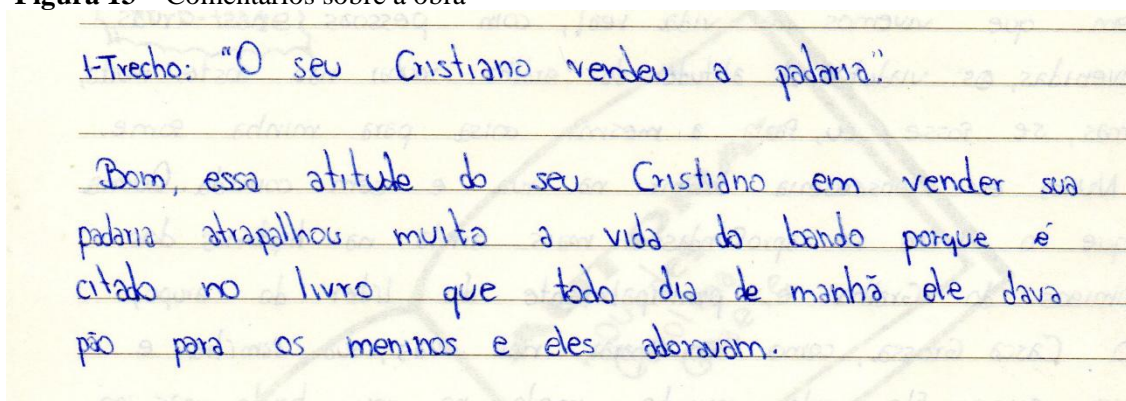 Figura 13 – Comentários sobre a obra
1-Trecho: "O seu Cristiano vendeu a padaria."
Bom, essa atitude do seu Cristiano em vender sua
padaria atrapalhou muito a vida do bando porque é
citado no livro que todo dia de manhã ele dava
pão para os meninos e eles adoravam.